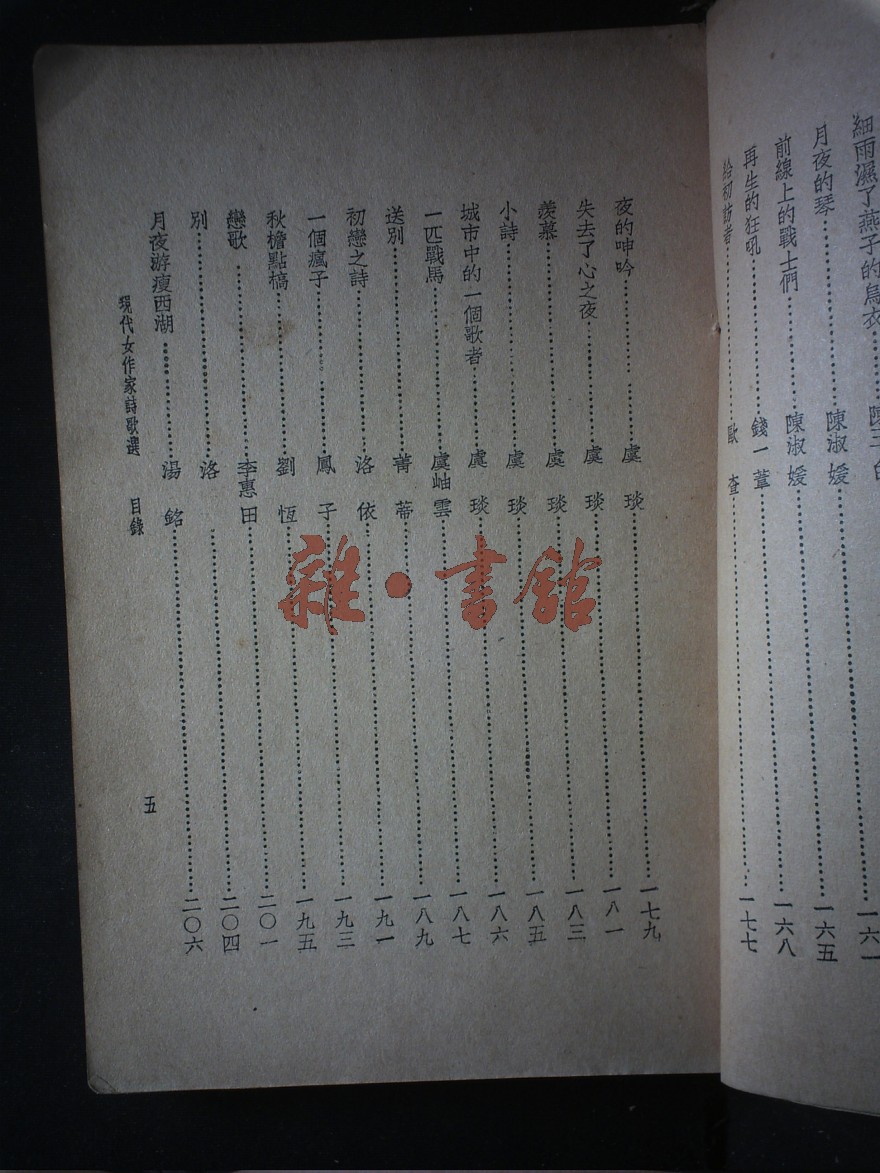 細雨濕了燕子的烏衣………陳三 一六一
月夜的琴………陳淑媛………一六五
前線上的戰士們………陳淑媛………一六八
再生的狂吼………錢一葦
給初訪者………歐查………一七七
夜的呻吟………虞琰………一七九
失去了心之夜………虞琰………一八一
羨慕………虞琰………一八三
小詩………虞琰………一八五
城市中的一個歌者………虞琰………一八六
一匹戰馬………虞岫雲………一八七
送別………菁蒂………一八九
初戀之詩………洛依………一九一
一個瘋子………鳳子………一九三
秋檐點槁………劉恆………一九五
戀歌………李惠田………二〇一
別………洛………二〇四
月夜游瘦西湖………湯銘………二〇六
現代女作家詩歌選 目錄 五
雜·書館